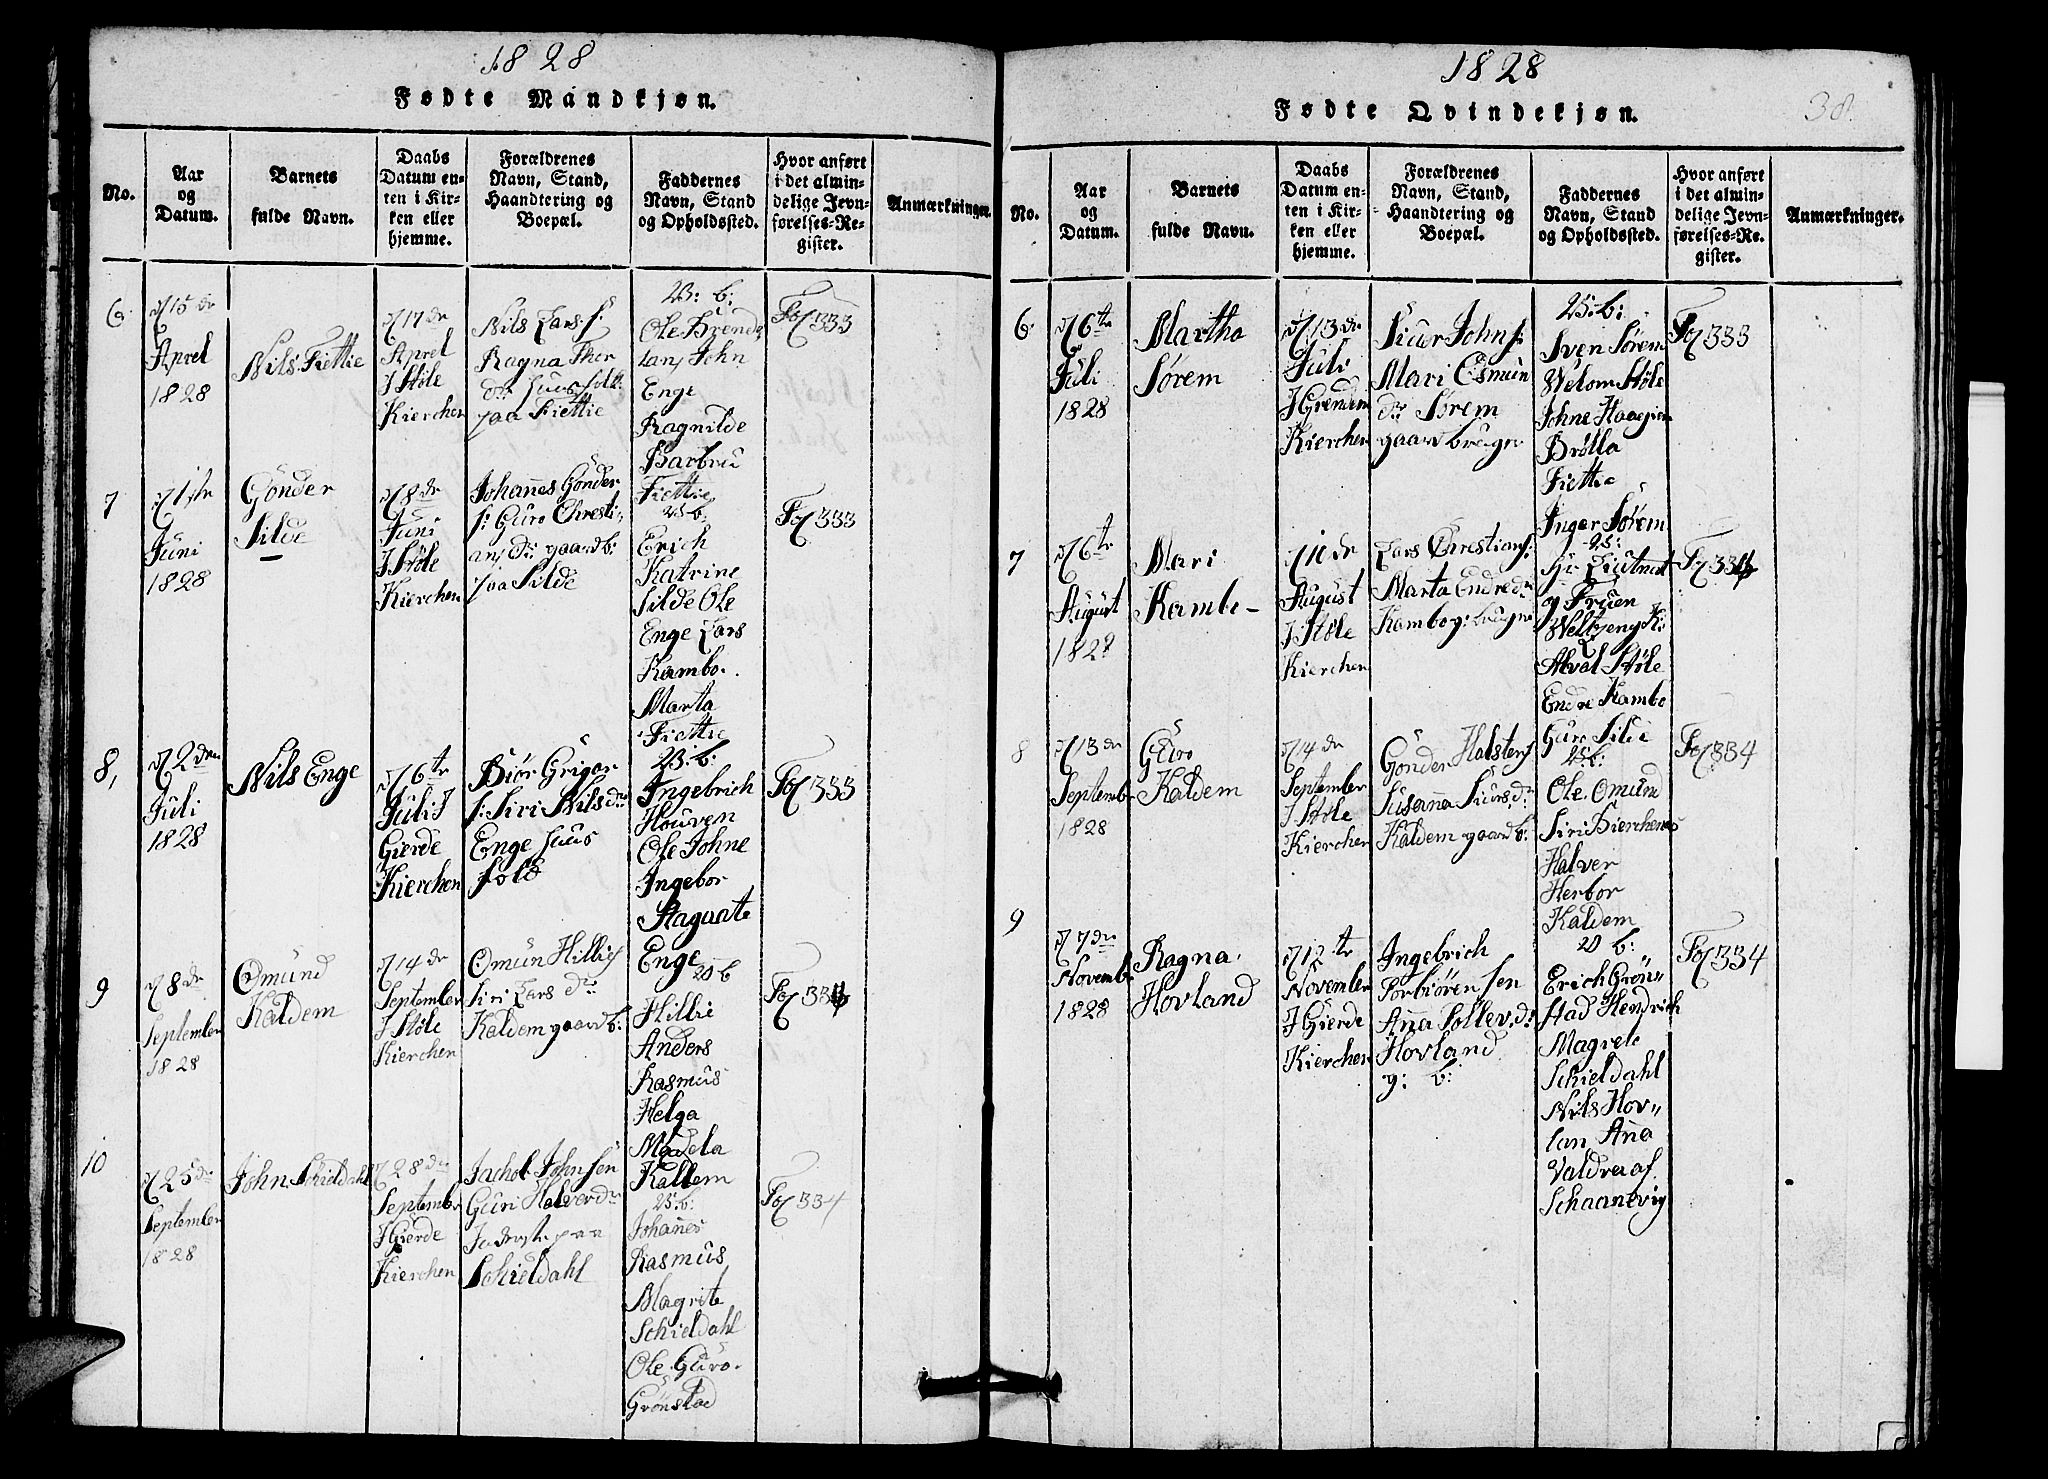 1828
Fødte Mandkjøn.
No.
Aar
og
Datum.
Barnets
fulde Navn.
Daabs
Datum en-
ten i Kir-
ken eller
hjemme.
Forældrenes
Navn, Stand,
Haandtering og
Boepæl.
Faddernes
Navn, Stand
og Opholdssted.
Hvor anført
i det almin-
delige Jevn-
førelses-Re-
gister.
Anmærkninger.
6.
d 15 de
Aprel
1828
Nils Fiettie
d 17 de
Aprel
I Støle
Kierchen
Nils Lars s:
Ragna Thor
dr huusfolk
paa Fiettie
23: b:
Ole Brend
lans John
Enge
Ragnilde
Barbru
Fiettie
Fol 333
7
d 1ste
Juni
1828
Gönder
Silde
d 8 de
Juni
I Støle
Kierchen
Johanes Gönder
s: Guro Chresti
ans dr gaardb:
paa Silde
25 b:
Erich
Katrine
Silde Ole
Enge Lars
Kambo.
Marta
Fiettie
Fol 333
8,
d 2 den
Juli
1828
Nils Enge
d 6 te
Juli I
Gierde
Kierchen
Biør Grigar
s: Siri Nils dr
Enge huus
folk
23: b:
Ingebrich
Houven
Ole Johne
Ingebor
Aagaate
Enge
Fol 333
9
d 8 de
September
1828
Omund
Kaldem
d 14 de
September
I Støle
Kierchen
Omun Hillis
Siri Lars dr
Kaldem gaardb:
20 b
Hillie
Anders
Rasmus
Helga
Madela
Kallem
Fol 334
10
d 25 de
September
1828
John Schieldahl
d 28 de
September
I Gierde
Kierchen
Jachol Johnsen
Guri Halver dr
Inderste paa
Schieldahl
25: b:
Johanes
Rasmus
Magrite
Schieldahl
Ole Guro
Grønstad
Fol 334
1828
Fødte Qvindekjøn.
38.
No.
Aar
og
Datum.
Barnets
fulde Navn.
Daabs
Datum en-
ten i Kir-
ken eller
hjemme.
Forældrenes
Navn, Stand,
Haandtering og
Boepæl.
Faddernes
Navn, Stand
og Opholdssted.
Hvor anført
i det almin-
delige Jevn-
førelses-Re-
gister.
Anmærkninger.
6:
d 6te
Juli
1828
Martha
Sørem
d 13 de
Juli
I Grendem
Kierchen
Siver John s:
Mari Esmun
dr Sørem
gaardbruger
25: b:
Sven Sørem
Welom Støle
Johne Haagien
Brølla
Fiettie
Inger Sørem
Fol 333
7
d 6te
August
1828
Mari
Kambe
d 10 de
August
I Støle
Kierchen
Lars Chrestian s:
Marta Endre dr
Kambo g: bruger
25:
Hr Liutnat
og Fruen
Weltzeng
Støle
Endre Kambe
Guro Silie
Fol 334
8
d 13 de
Septemb
1828
Guro
Kaldem
d 14 de
September
I Støle
Kierchen
Gonder Halstens
Susanna Siurs dr
Kaldem gaardb:
25: b:
Ole Omund
Siri Bierchenes
Halver
Herbor
Kaldem
Fol 334
9
d 7 de
Novemb
1828
Ragna
Hovland
d 12 te
November
I Gierde
Kierchen
Ingebrich
Torbiørensen
Anna Tollev dr
Hovland
g: b:
20 b:
Erich Grøn
stad Hendrich
Magrete
Schieldahl
Nils Hov
lan Ana
Valdraa af
Schaanevig
Fol 334